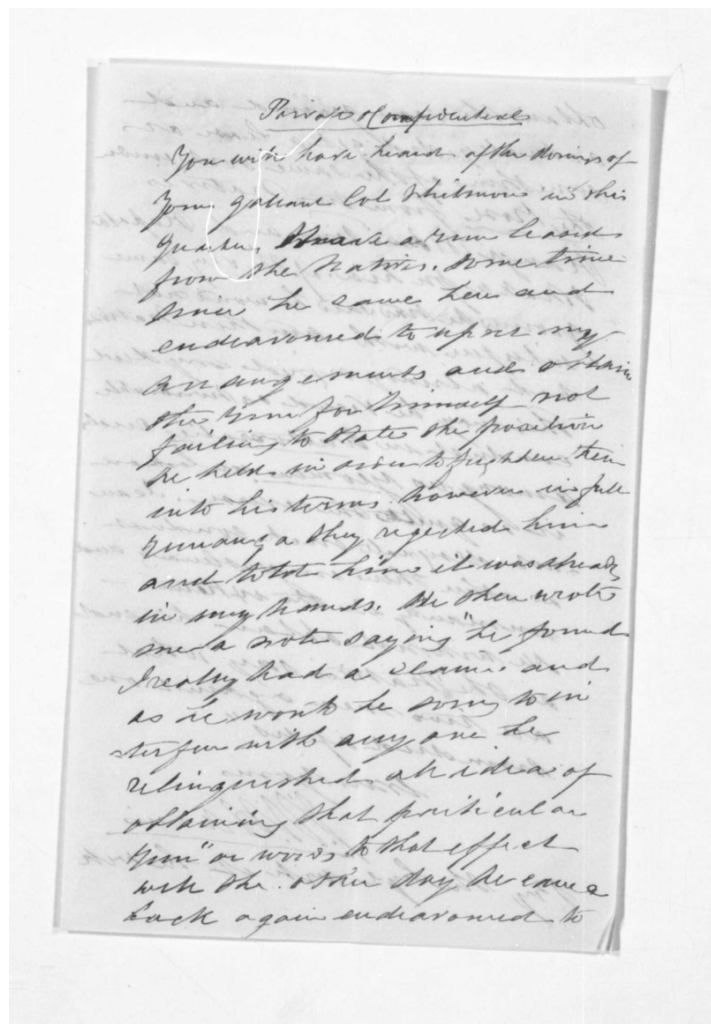 Private & Confidential
You will have heard of the doings of
your gallant Col Whitmore in this
quarter. I have a run leased
from the Natives. Some time
since he came here and
endeavoured to upset my
arrangements and obtain
the run for himself not
failing to state the position
he held in order to frighten them
into his terms. however in full
runanga they rejected him
and told him it was already
in my hands. He then wrote
me a note saying "he found
I really had a claim and
as he would be sorry to in
terfere with any one he
relinquished all idea of
obtaining that particular
run" or words to that effect
well the other day he came
back again endeavoured to